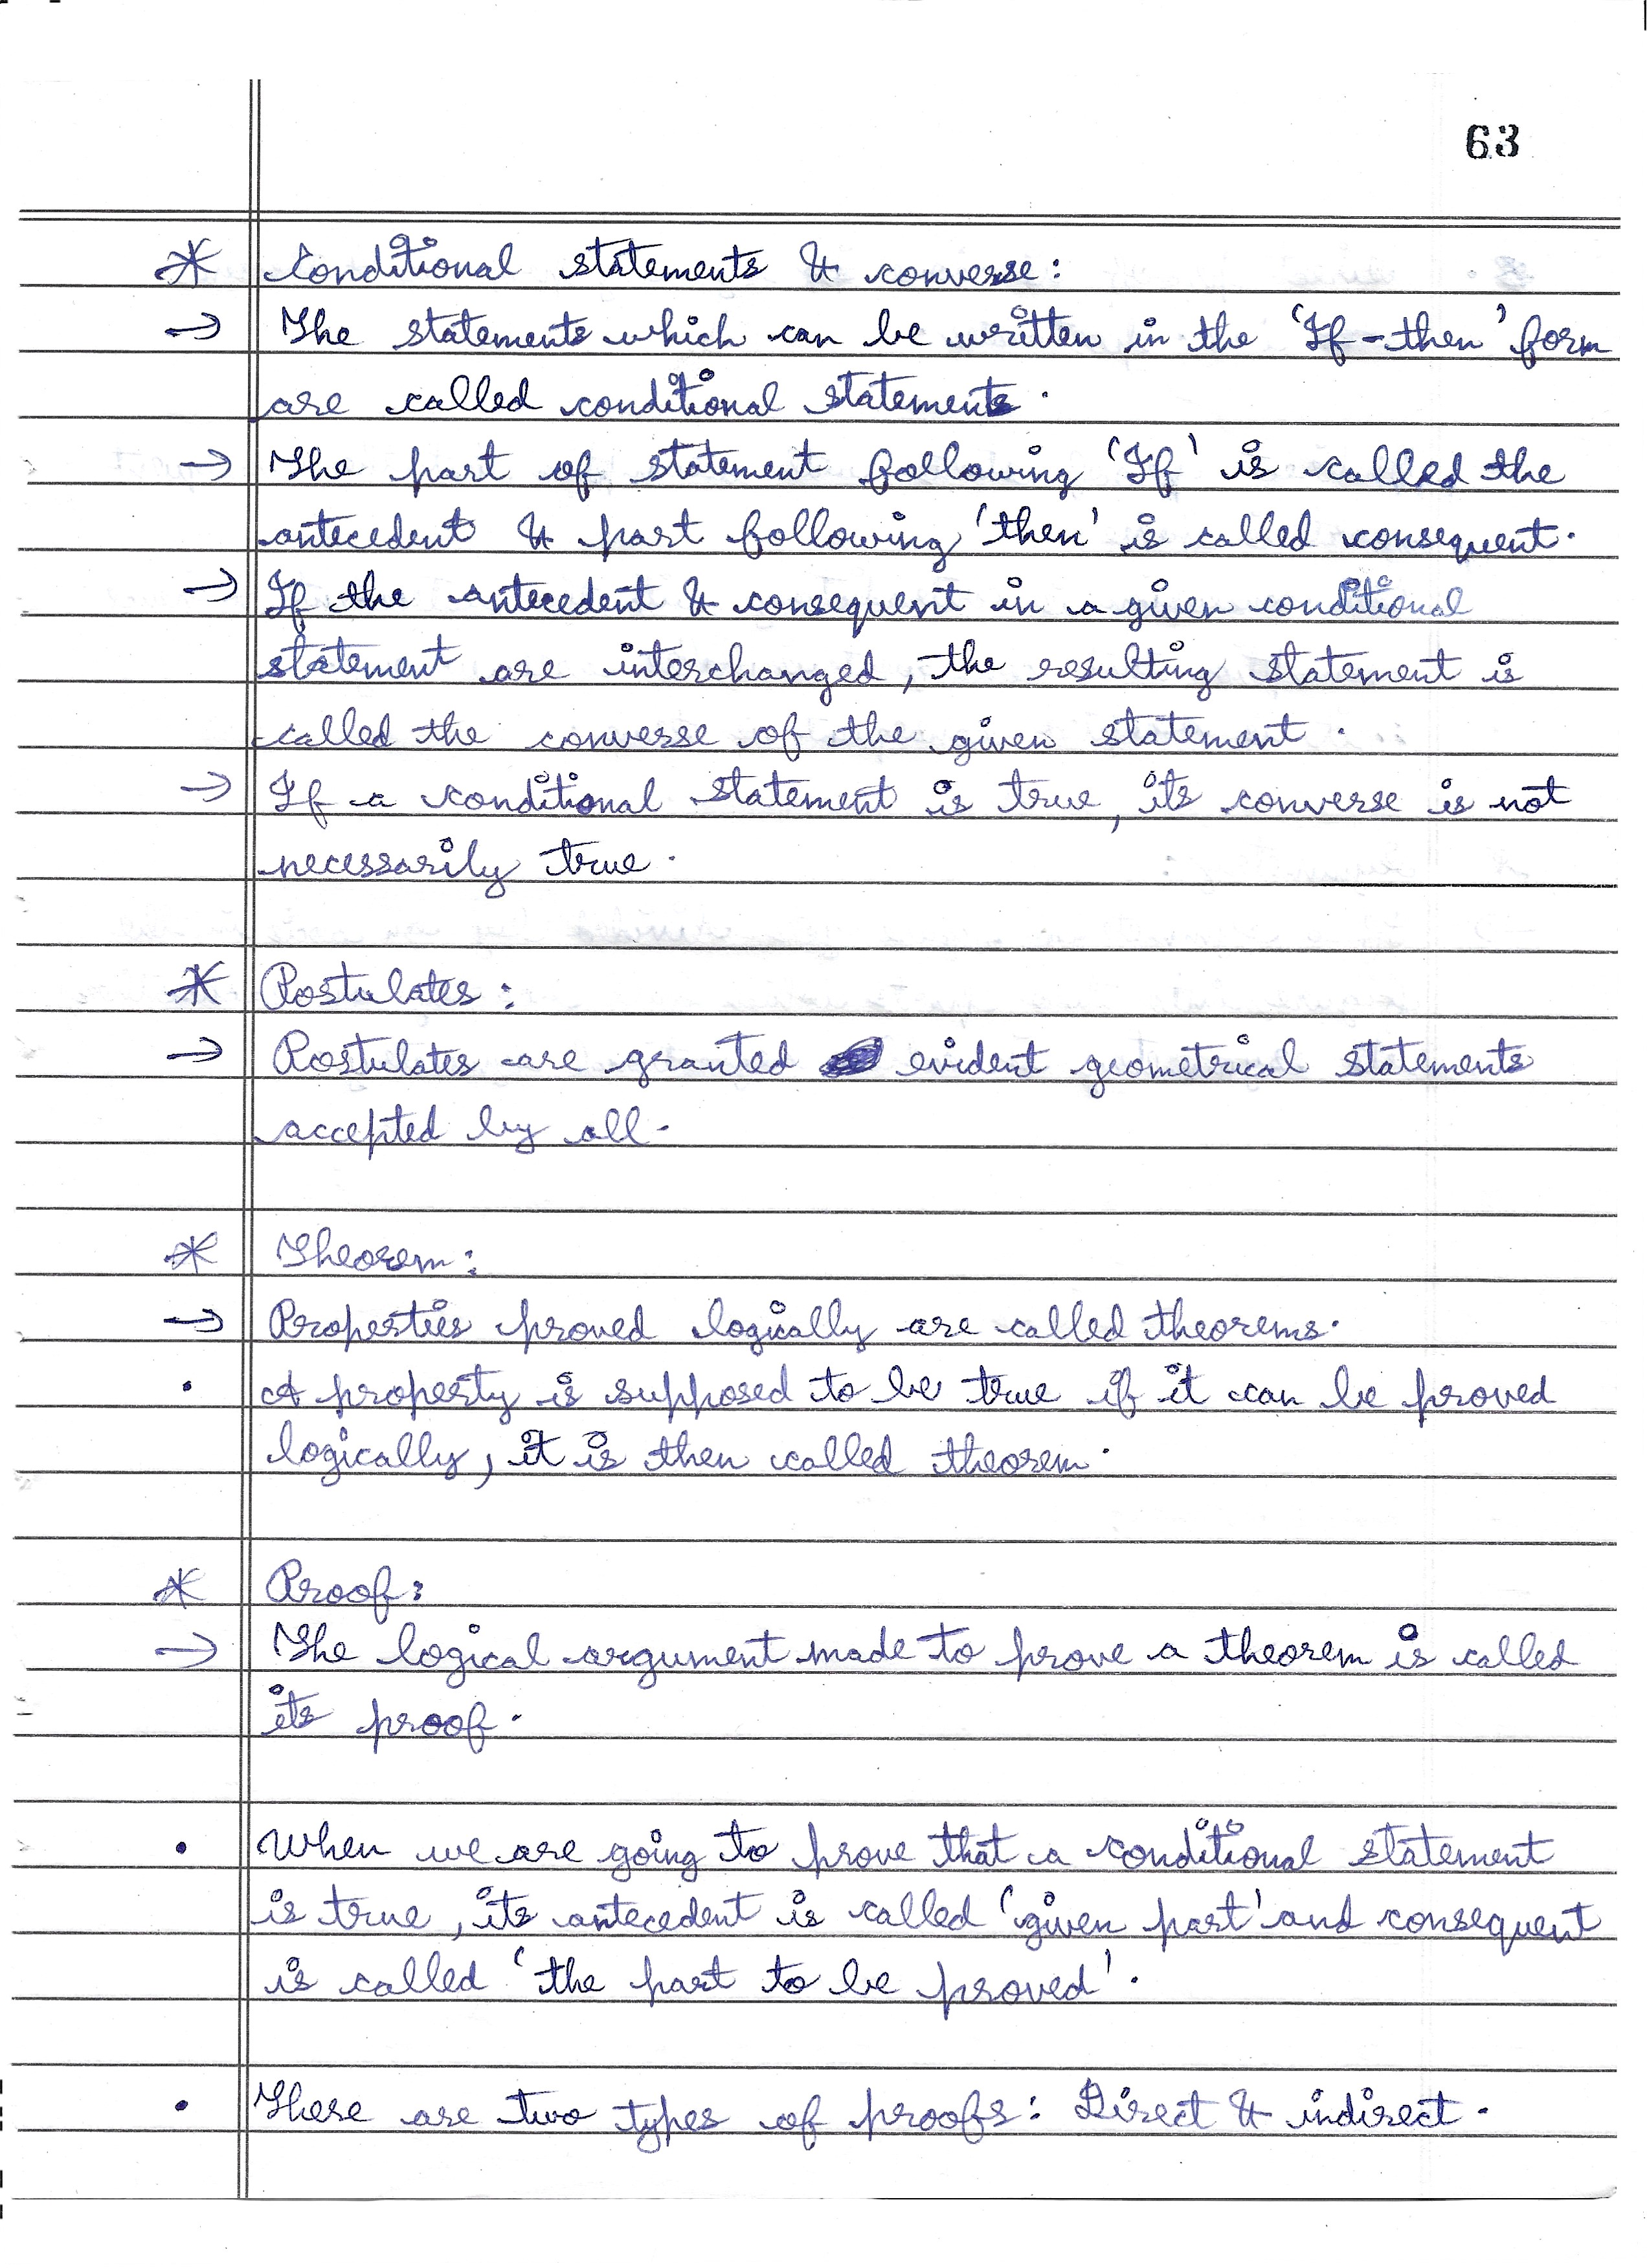 63
* Conditional statements & converse:
→ The statements which can be written in the 'If-then' form
are called conditional statements.
→ The part of statement following 'If' is called the
antecedent & part following 'then' is called consequent.
→ If the antecedent & consequent in a given conditional
statement are interchanged, the resulting statement is
called the converse of the given statement.
→ If a conditional statement is true, its converse is not
necessarily true.
* Postulates:
→ Postulates are granted evident geometrical statements
accepted by all.
* Theorem:
→ Properties proved logically are called theorems.
• A property is supposed to be true if it can be proved
logically, it is then called theorem.
* Proof:
→ The logical argument made to prove a theorem is called
its proof.
• When we are going to prove that a conditional statement
is true, its antecedent is called 'given part' and consequent
is called 'the part to be proved'.
• There are two types of proofs: Direct & indirect.